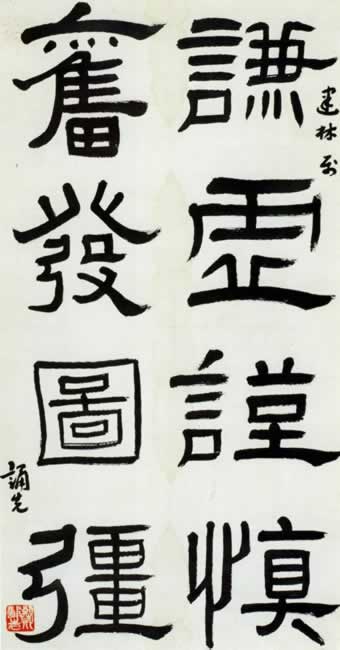 建林
謙虛謹慎
奮發圖彊
誦先